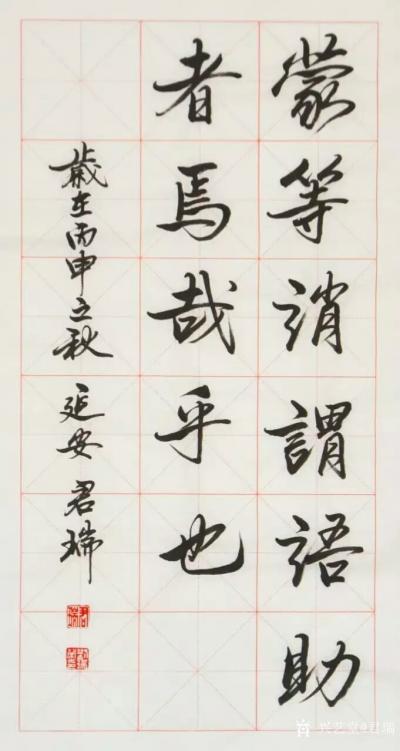 蒙等誚謂語助
者焉哉乎也
歲在丙申立秋 延安 君瑞
兴艺堂@君瑞